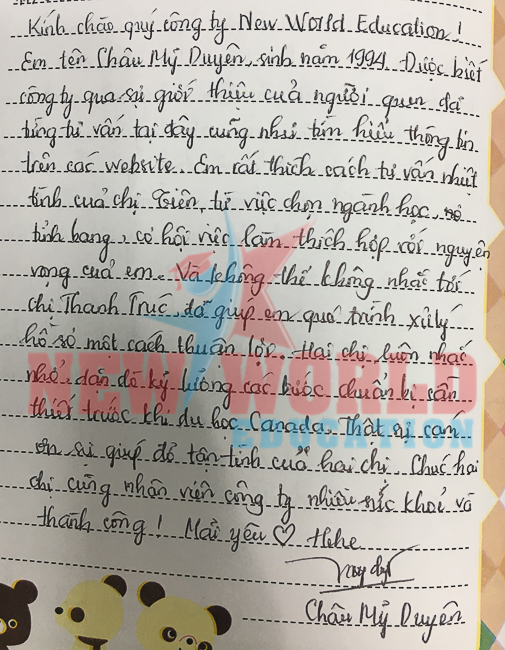 Kính chào quý công ty New World Education!
Em tên Châu Mỹ Duyên, sinh năm 1994. Được biết
công ty qua sự giới thiệu của người quen đã
từng tư vấn tại đây cũng như tìm hiểu thông tin
trên các website. Em rất thích cách tư vấn nhiệt
tình của chị Triên, từ việc chọn ngành học,
tỉnh bang, cơ hội việc làm thích hợp với nguyện
vọng của em. Và không thể không nhắc tới
chị Thanh Trúc, đã giúp em quá trình xử lý
hồ sơ một cách thuận lợi. Hai chị luôn nhắc
nhở, dặn dò kỹ lưỡng các bước chuẩn bị cần
thiết trước khi du học Canada. Thật sự cảm
ơn sự giúp đỡ tận tình của hai chị. Chúc hai
chị cùng nhân viên công ty nhiều sức khoẻ và
thành công! Mãi yêu ♡ Hihe
Châu Mỹ Duyên
NEW WORLD
EDUCATION